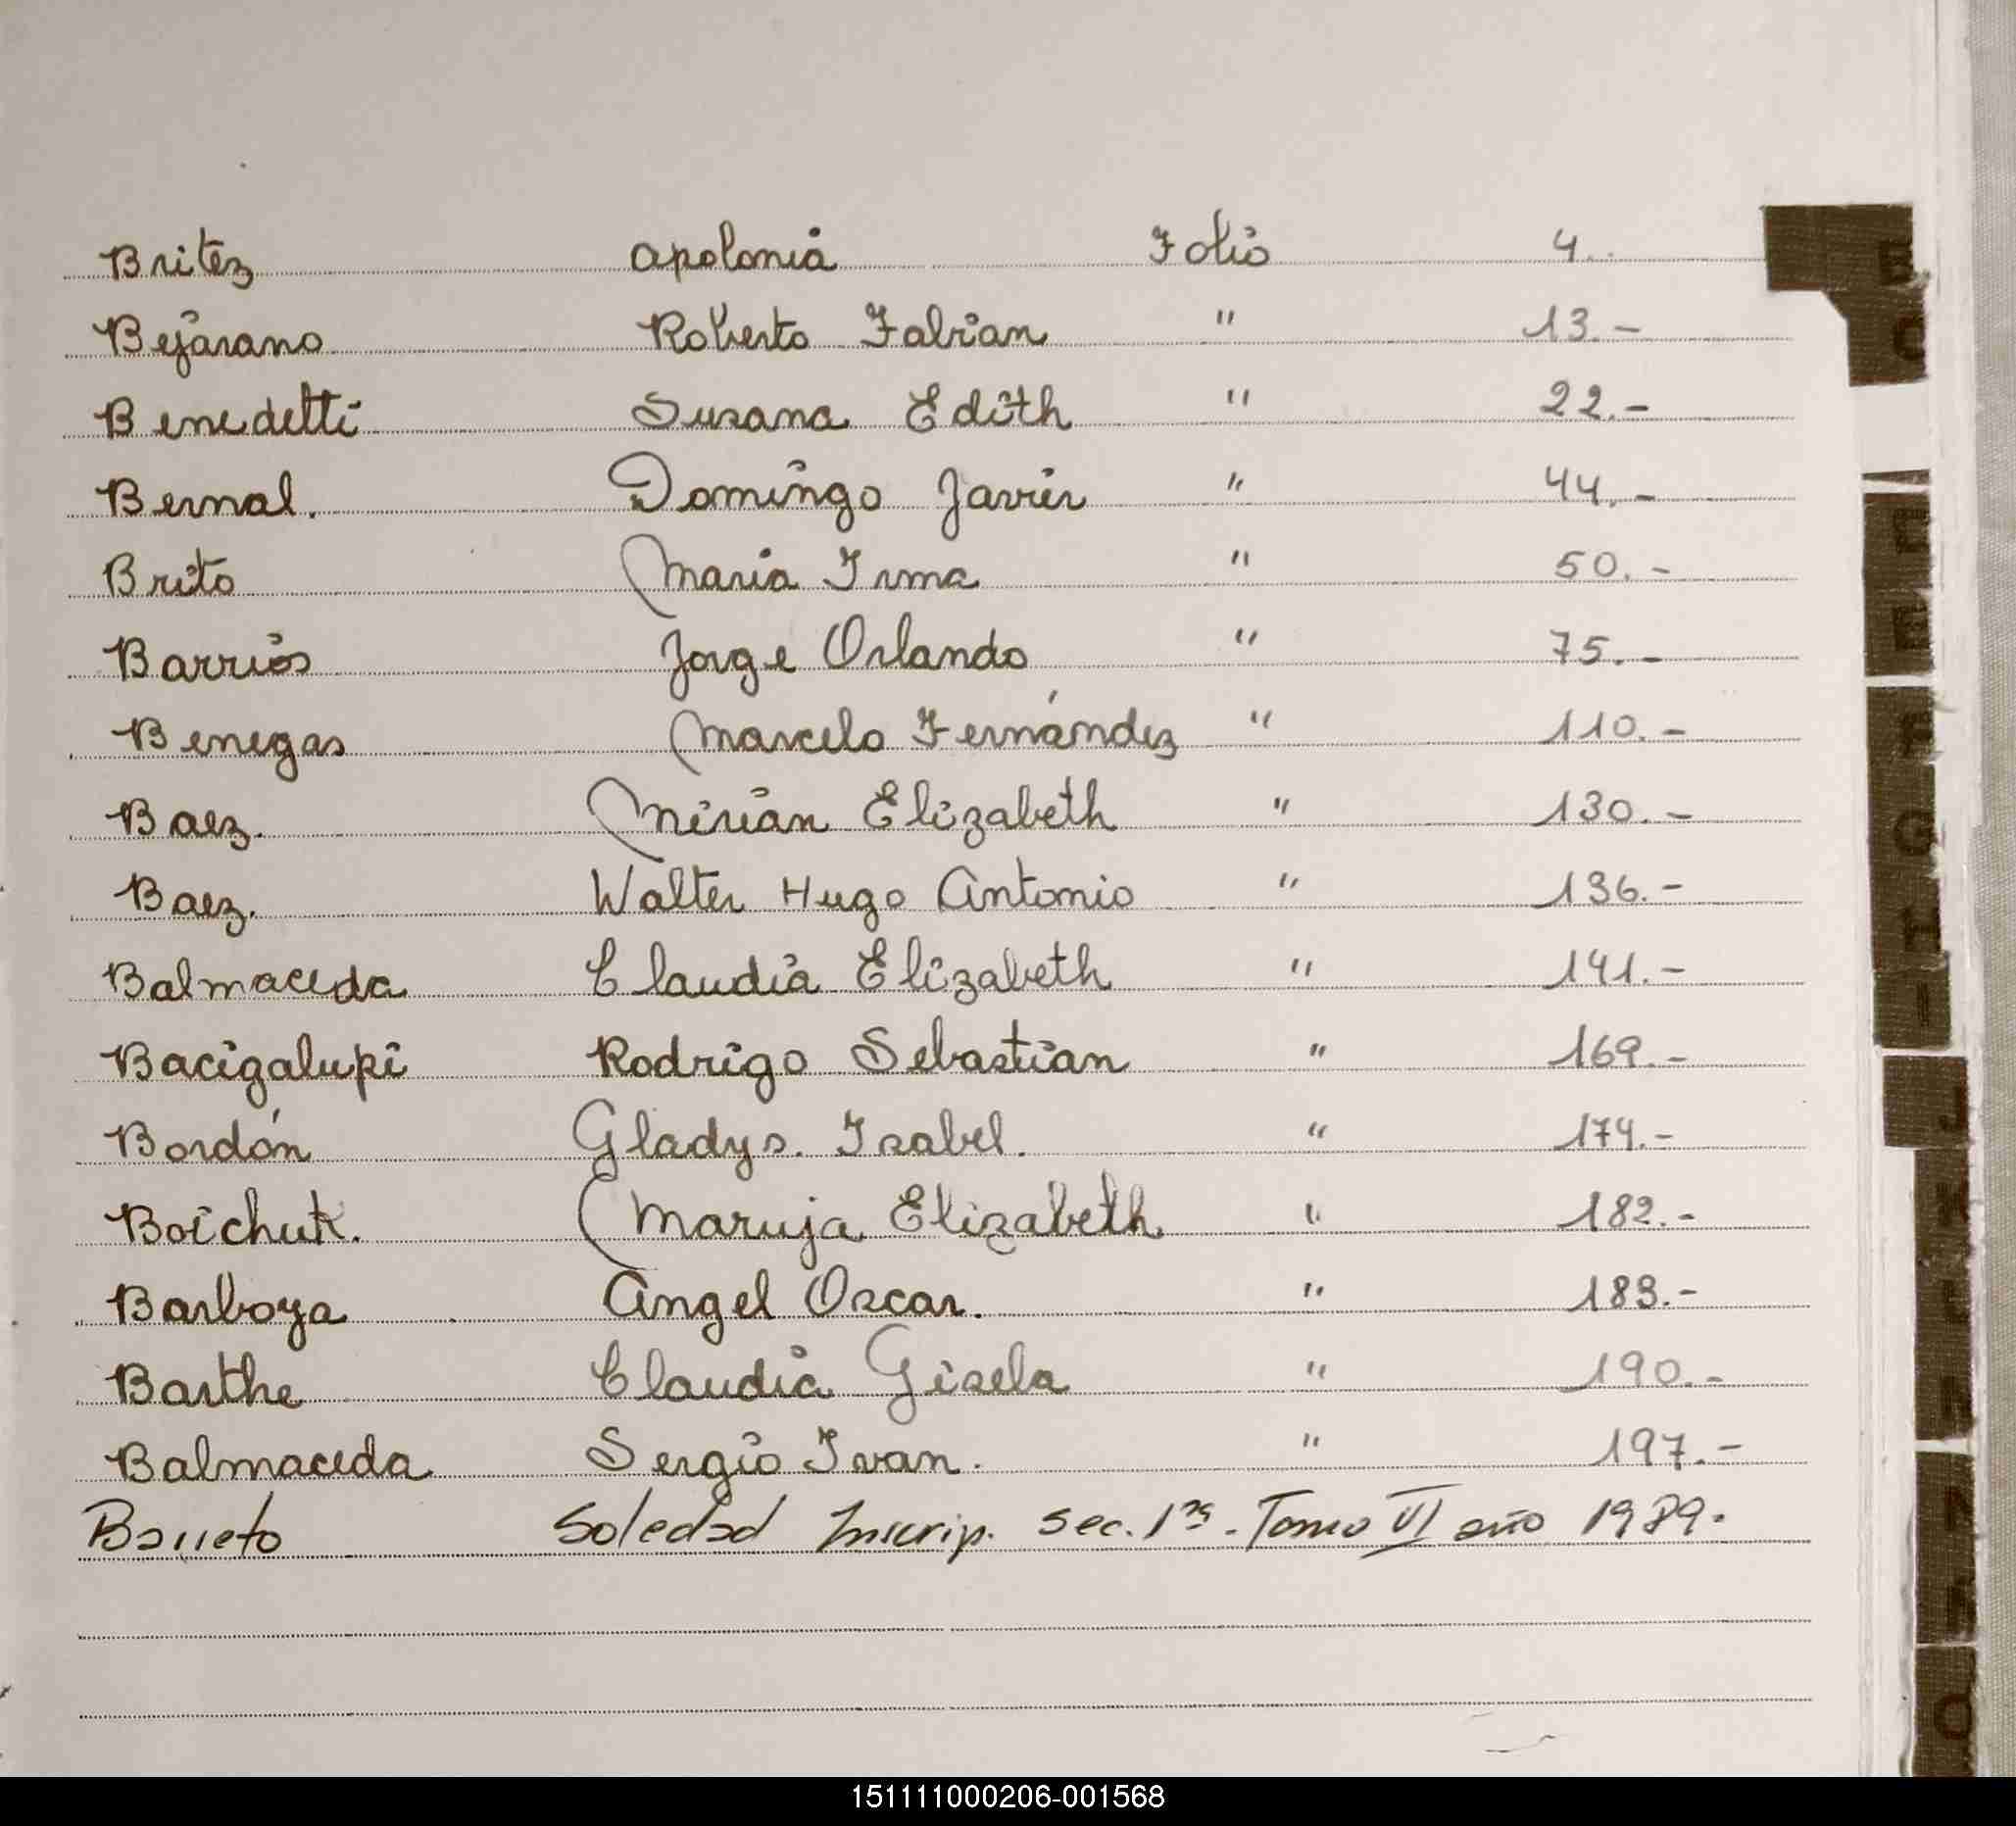 Britez apolonia Folio 4.
Bejarano Roberto Fabian " 13.-
Benedetti Susana Edith " 22.-
Bernal. Domingo Javier " 44.-
Brito Maria Irma " 50.-
Barrios Jorge Orlando " 75.-
Benegas Marcelo Fernández " 110.-
Baez. Mirian Elizabeth " 130.-
Baez. Walter Hugo Antonio " 136.-
Balmaceda Claudia Elizabeth " 141.-
Bacigalupi Rodrigo Sebastian " 169.-
Bordón Gladys. Isabel. " 174.-
Boichuk. Maruja Elizabeth " 182.-
Barboza Angel Oscar. " 183.-
Barthe Claudia Gisela " 190.-
Balmaceda Sergio Ivan. " 197.-
Barreto Soledad Inscrip. Sec. 1ra. Tomo VI año 1989.
B
C
E
F
G
H
I
J
K
L
O
151111000206-001568